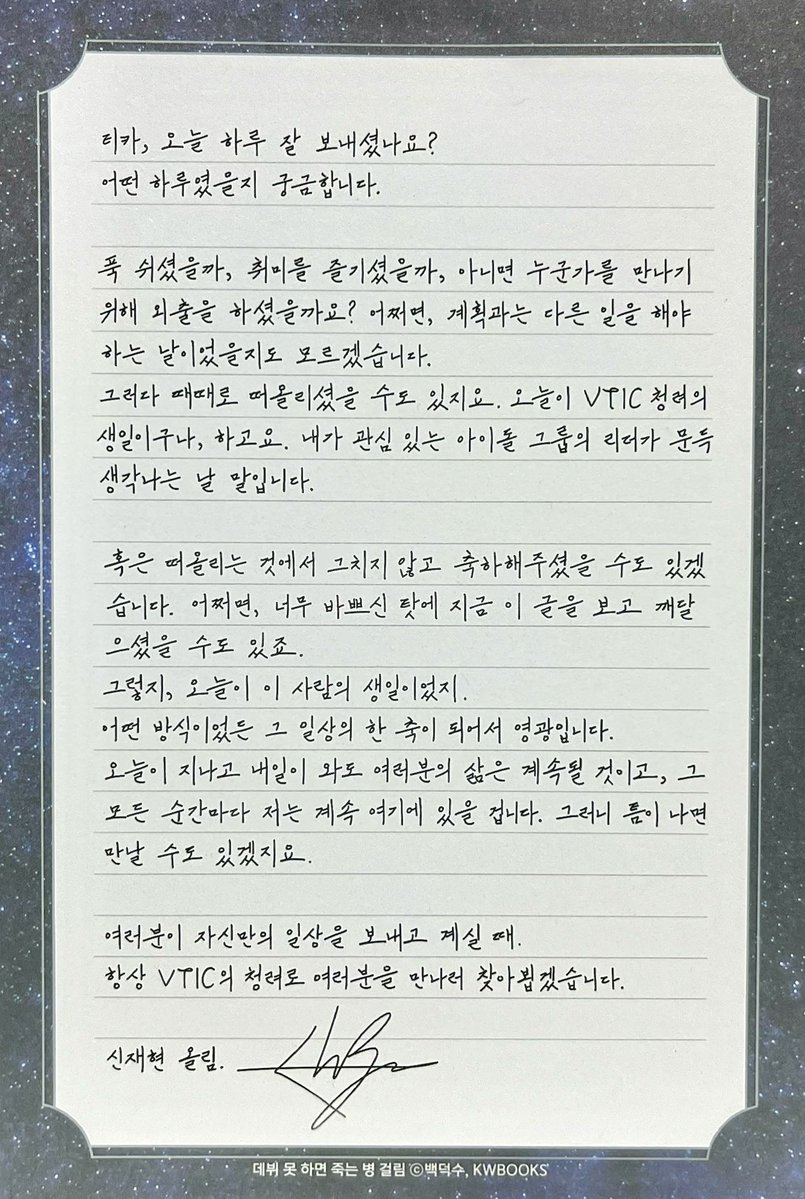 티카, 오늘 하루 잘 보내셨나요?
어떤 하루였을지 궁금합니다.
푹 쉬셨을까, 취미를 즐기셨을까, 아니면 누군가를 만나기
위해 외출을 하셨을까요? 어쩌면, 계획과는 다른 일을 해야
하는 날이었을지도 모르겠습니다.
그러다 때때로 떠올리셨을 수도 있지요. 오늘이 VTIC 청려의
생일이구나, 하고요. 내가 관심 있는 아이돌 그룹의 리더가 문득
생각나는 날 말입니다.
혹은 떠올리는 것에서 그치지 않고 축하해주셨을 수도 있겠
습니다. 어쩌면, 너무 바쁘신 탓에 지금 이 글을 보고 깨달
으셨을 수도 있죠.
그렇지, 오늘이 이 사람의 생일이었지.
어떤 방식이었든 그 일상의 한 축이 되어서 영광입니다.
오늘이 지나고 내일이 와도 여러분의 삶은 계속될 것이고, 그
모든 순간마다 저는 계속 여기에 있을 겁니다. 그러니 틈이 나면
만날 수도 있겠지요.
여러분이 자신만의 일상을 보내고 계실 때.
항상 VTIC의 청려로 여러분을 만나러 찾아뵙겠습니다.
신재현 올림.
데뷔 못 하면 죽는 병 걸림 ⓒ백덕수, KWBOOKS